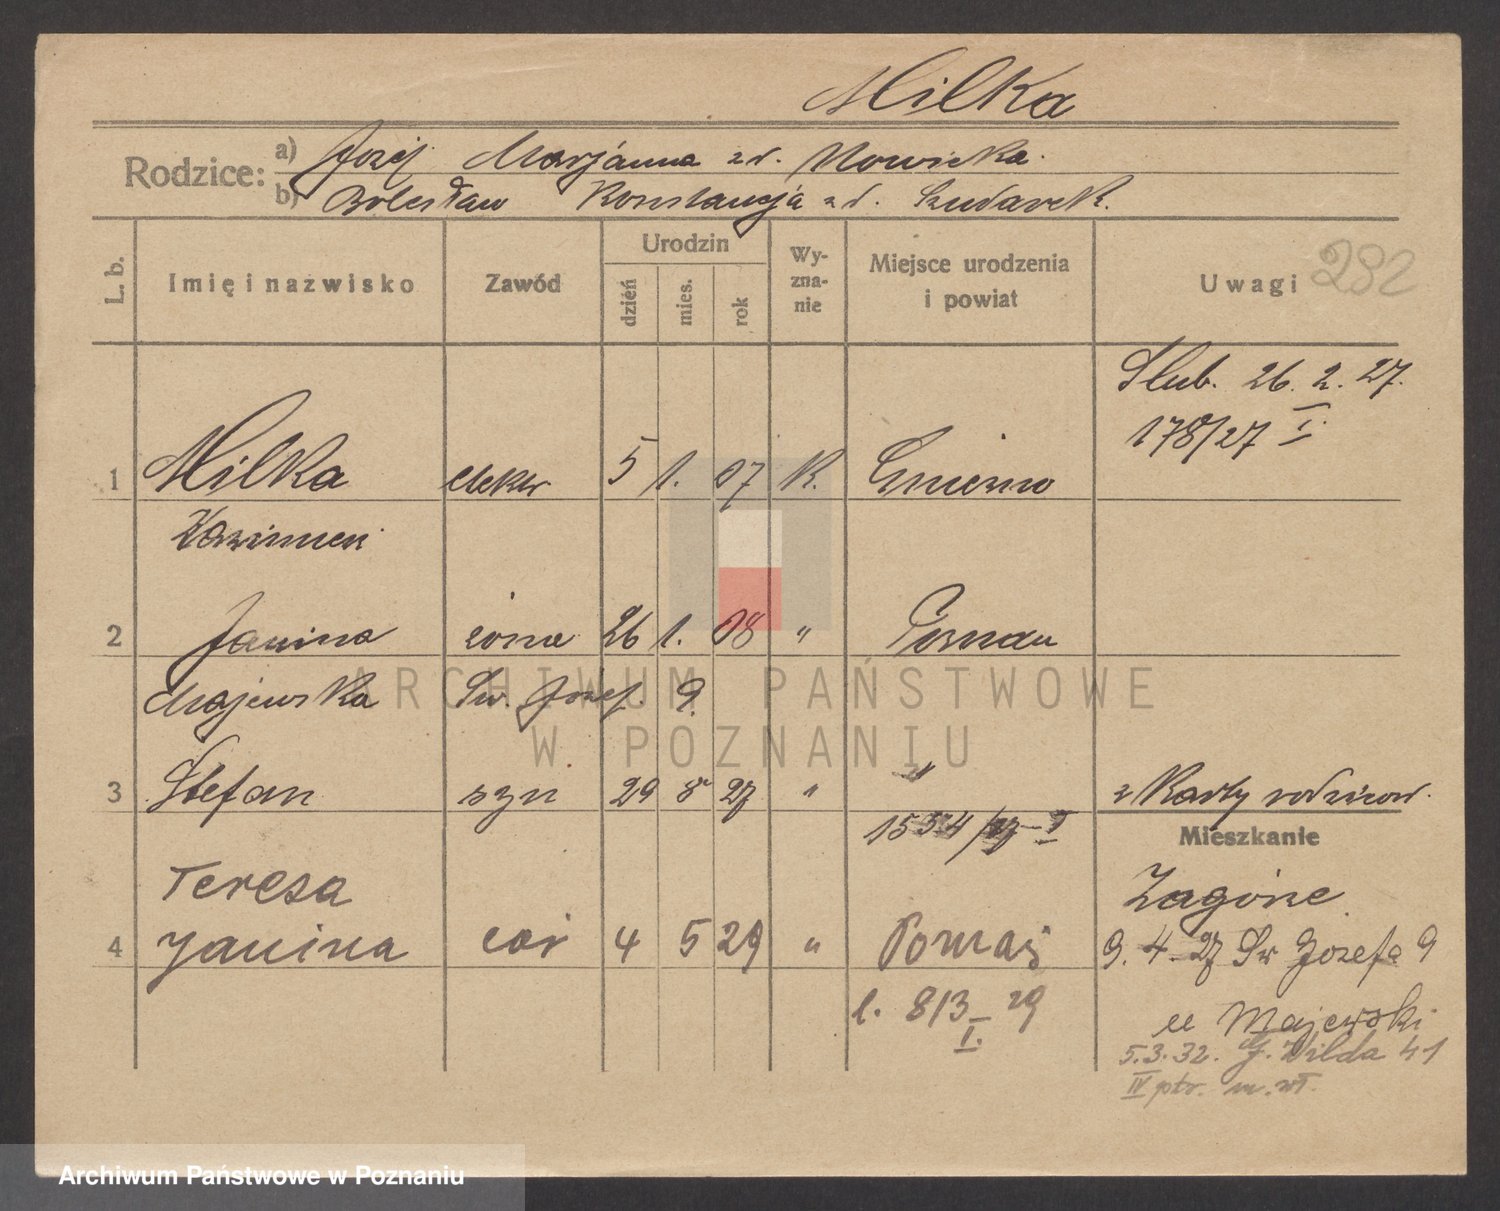 Milka
Rodzice: a) Józef Marjanna z d. Nowicka.
b) Bolesław Konstancja z d. Szudarek.
L. b. Imię i nazwisko Zawód Urodzin dzień mies. rok Wy-zna-nie Miejsce urodzenia i powiat Uwagi 282
Ślub. 26. 2. 27.
178/27 I.
1 Milka elektr 5 1. 07 K. Gniezno
Kazimierz
2 Janina żona 26 1. 08 " Poznań
Majewska Św. Józef. 9.
3 Stefan syn 29 8 27 " " z Karty rodziców.
1534/27 I
Mieszkanie
Teresa
Zagórze
4 Janina cór 4 5 29 " Poznań
9. 4. 27 Św Józefa 9
l. 813 I. 29
u Majewski
5.3.32. G. Wilda 41
IV ptr. m. wł.
ARCHIWUM PAŃSTWOWE
W POZNANIU
Archiwum Państwowe w Poznaniu